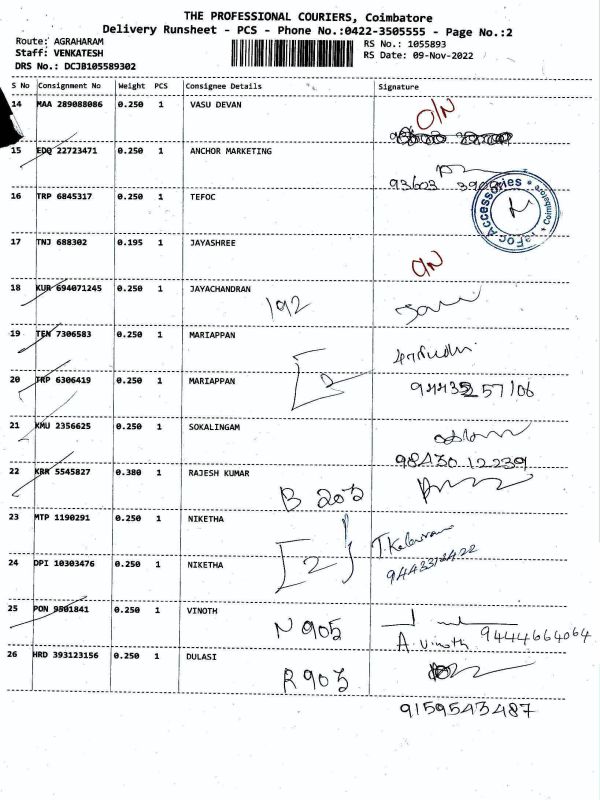 THE PROFESSIONAL COURIERS, Coimbatore
Delivery Runsheet - PCS - Phone No.:0422-3505555 - Page No.:2
Route: AGRAHARAM
RS No.: 1055893
Staff: VENKATESH
RS Date: 09-Nov-2022
DRS No.: DCJB105589302
S No Consignment No Weight PCS Consignee Details Signature
14 MAA 289088086 0.250 1 VASU DEVAN O/N
15 EDQ 22723471 0.250 1 ANCHOR MARKETING
93603
16 TRP 6845317 0.250 1 TEFOC
For Accessories * Coimbatore *
17 TNJ 688302 0.195 1 JAYASHREE
O/N
18 KUR 694071245 0.250 1 JAYACHANDRAN
192
19 TEN 7306583 0.250 1 MARIAPPAN
20 TRP 6306419 0.250 1 MARIAPPAN
2
21 KMU 2356625 0.250 1 SOKALINGAM
98430 12239
22 KRR 5545827 0.380 1 RAJESH KUMAR
B 203
23 MTP 1190291 0.250 1 NIKETHA
24 DPI 10303476 0.250 1 NIKETHA
[2]
25 PON 9501841 0.250 1 VINOTH
N 905
A. Vinoth 9444664064
26 HRD 393123156 0.250 1 DULASI
R 903
9159543487